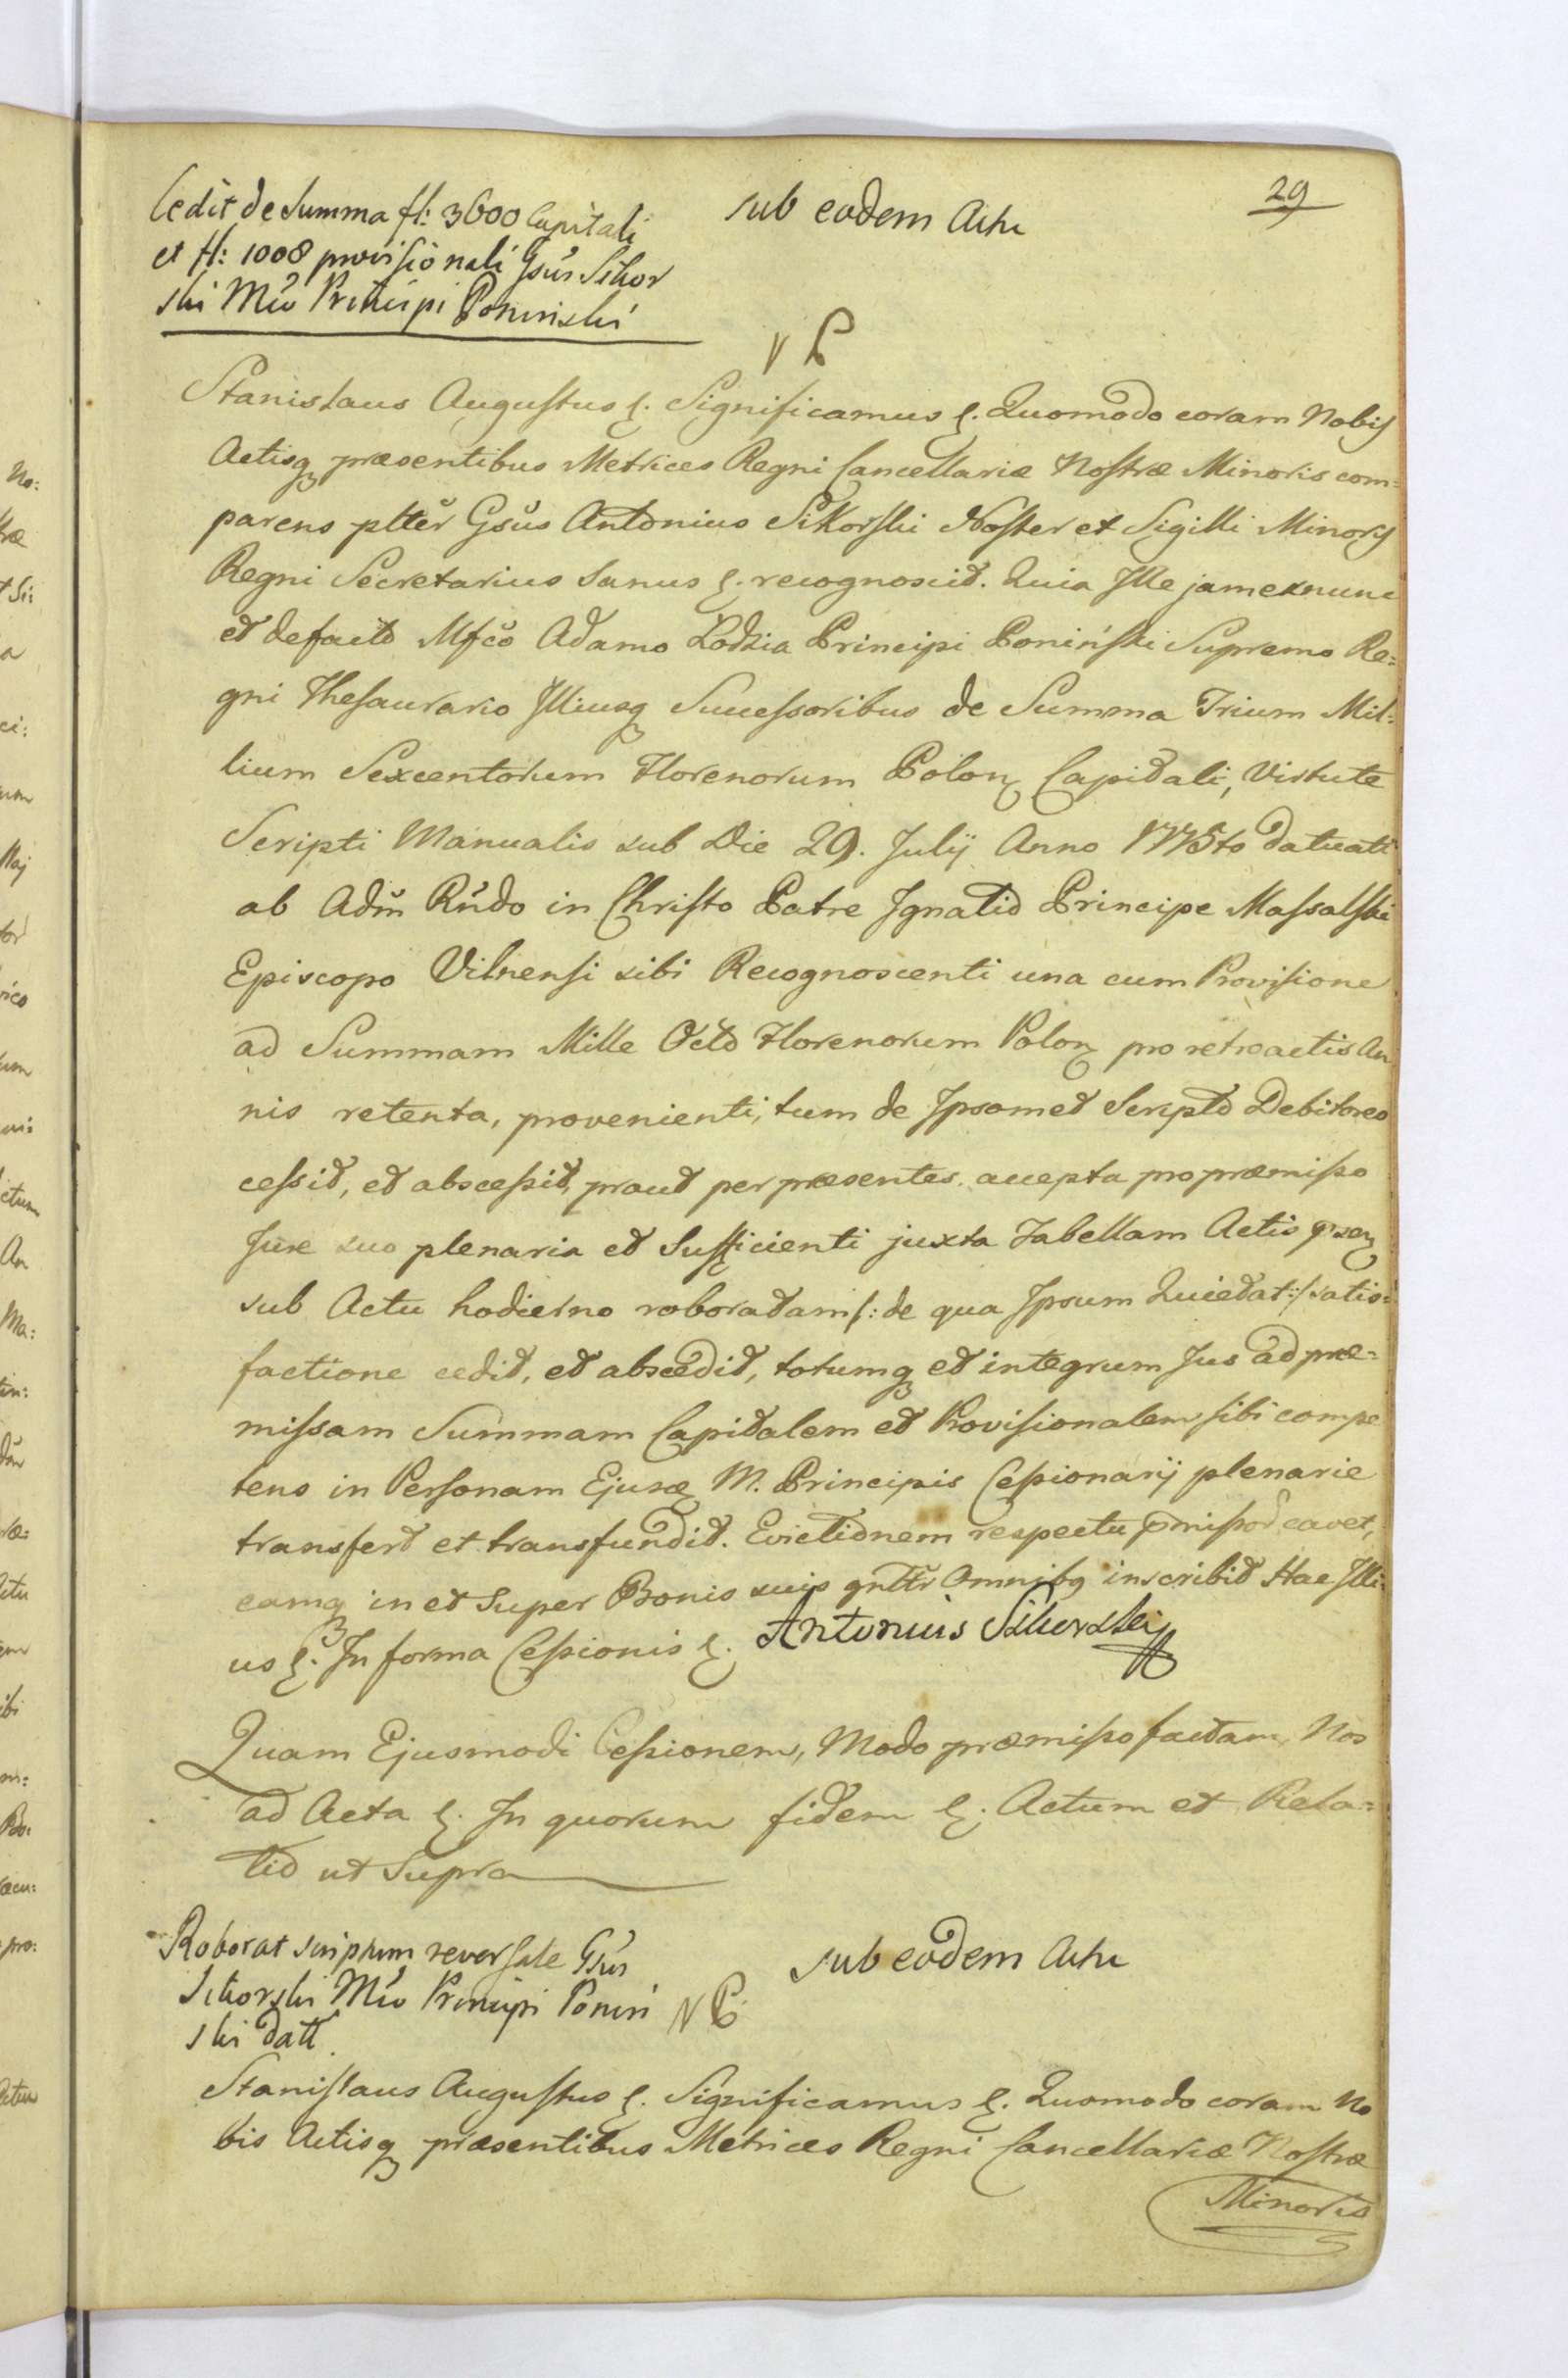 29
Cedit de Summa fl: 3600 Capitali
et fl: 1008 provisionali Gsus Sikor
ski Mco Principi Poninski
sub eodem Actu
Stanislaus Augustus &. Significamus &. Quomodo coram Nobis
Actisq præsentibus Metrices Regni Cancellariæ Nostræ Minoris com=
parens pltter Gsus Antonius Sikorski Noster et Sigilli Minoris
Regni Secretarius sanus &. recognoscit. Quia Ille jam exnunc
et defacto Mfco Adamo Łodzia Principi Poniński Supremo Re=
gni Thesaurario Illiusq Successoribus de Summa Trium Mil=
lium Sexcentorum Florenorum Polon Capitali, Virtute
Scripti Manualis sub Die 29. Julij Anno 1775to datuati
ab Adm Rndo in Christo Patre Ignatio Principe Massalski
Episcopo Vilnensi sibi Recognoscenti una cum Provisione
ad Summam Mille Octo Florenorum Polon pro retroactis An
nis retenta, provenienti, tum de Ipsomet Scripto Debitoreo
cessit, et abscessit, prout per præsentes accepta pro præmisso
Jure suo plenaria et sufficienti juxta Tabellam Actis præsen
sub Actu hodierno roboratam /: de qua Ipsum Quietat :/ satis=
factione cedit, et abscedit, totumq et integrum Jus ad præ=
missam Summam Capitalem et Provisionalem sibi compe
tens in Personam Ejusq M. Principis Cessionarij plenarie
transfert et transfundit. Evictionem respectu pmissor cavet,
eamq in et super Bonis suis gnltr Omnibq inscribit Hac Illi
us &. In forma Cessionis &. Antonius Sikorski
Quam Ejusmodi Cessionem, Modo præmisso factam, Nos
ad Acta &. In quorum fidem &. Actum et Rela=
tio ut supra
Roborat scriptum reversale Gsus
Sikorski Mco Principi Ponin
ski datt.
sub eodem Actu
Stanislaus Augustus &. Significamus &. Quomodo coram No
bis Actisq præsentibus Metrices Regni Cancellariæ Nostræ
Minoris